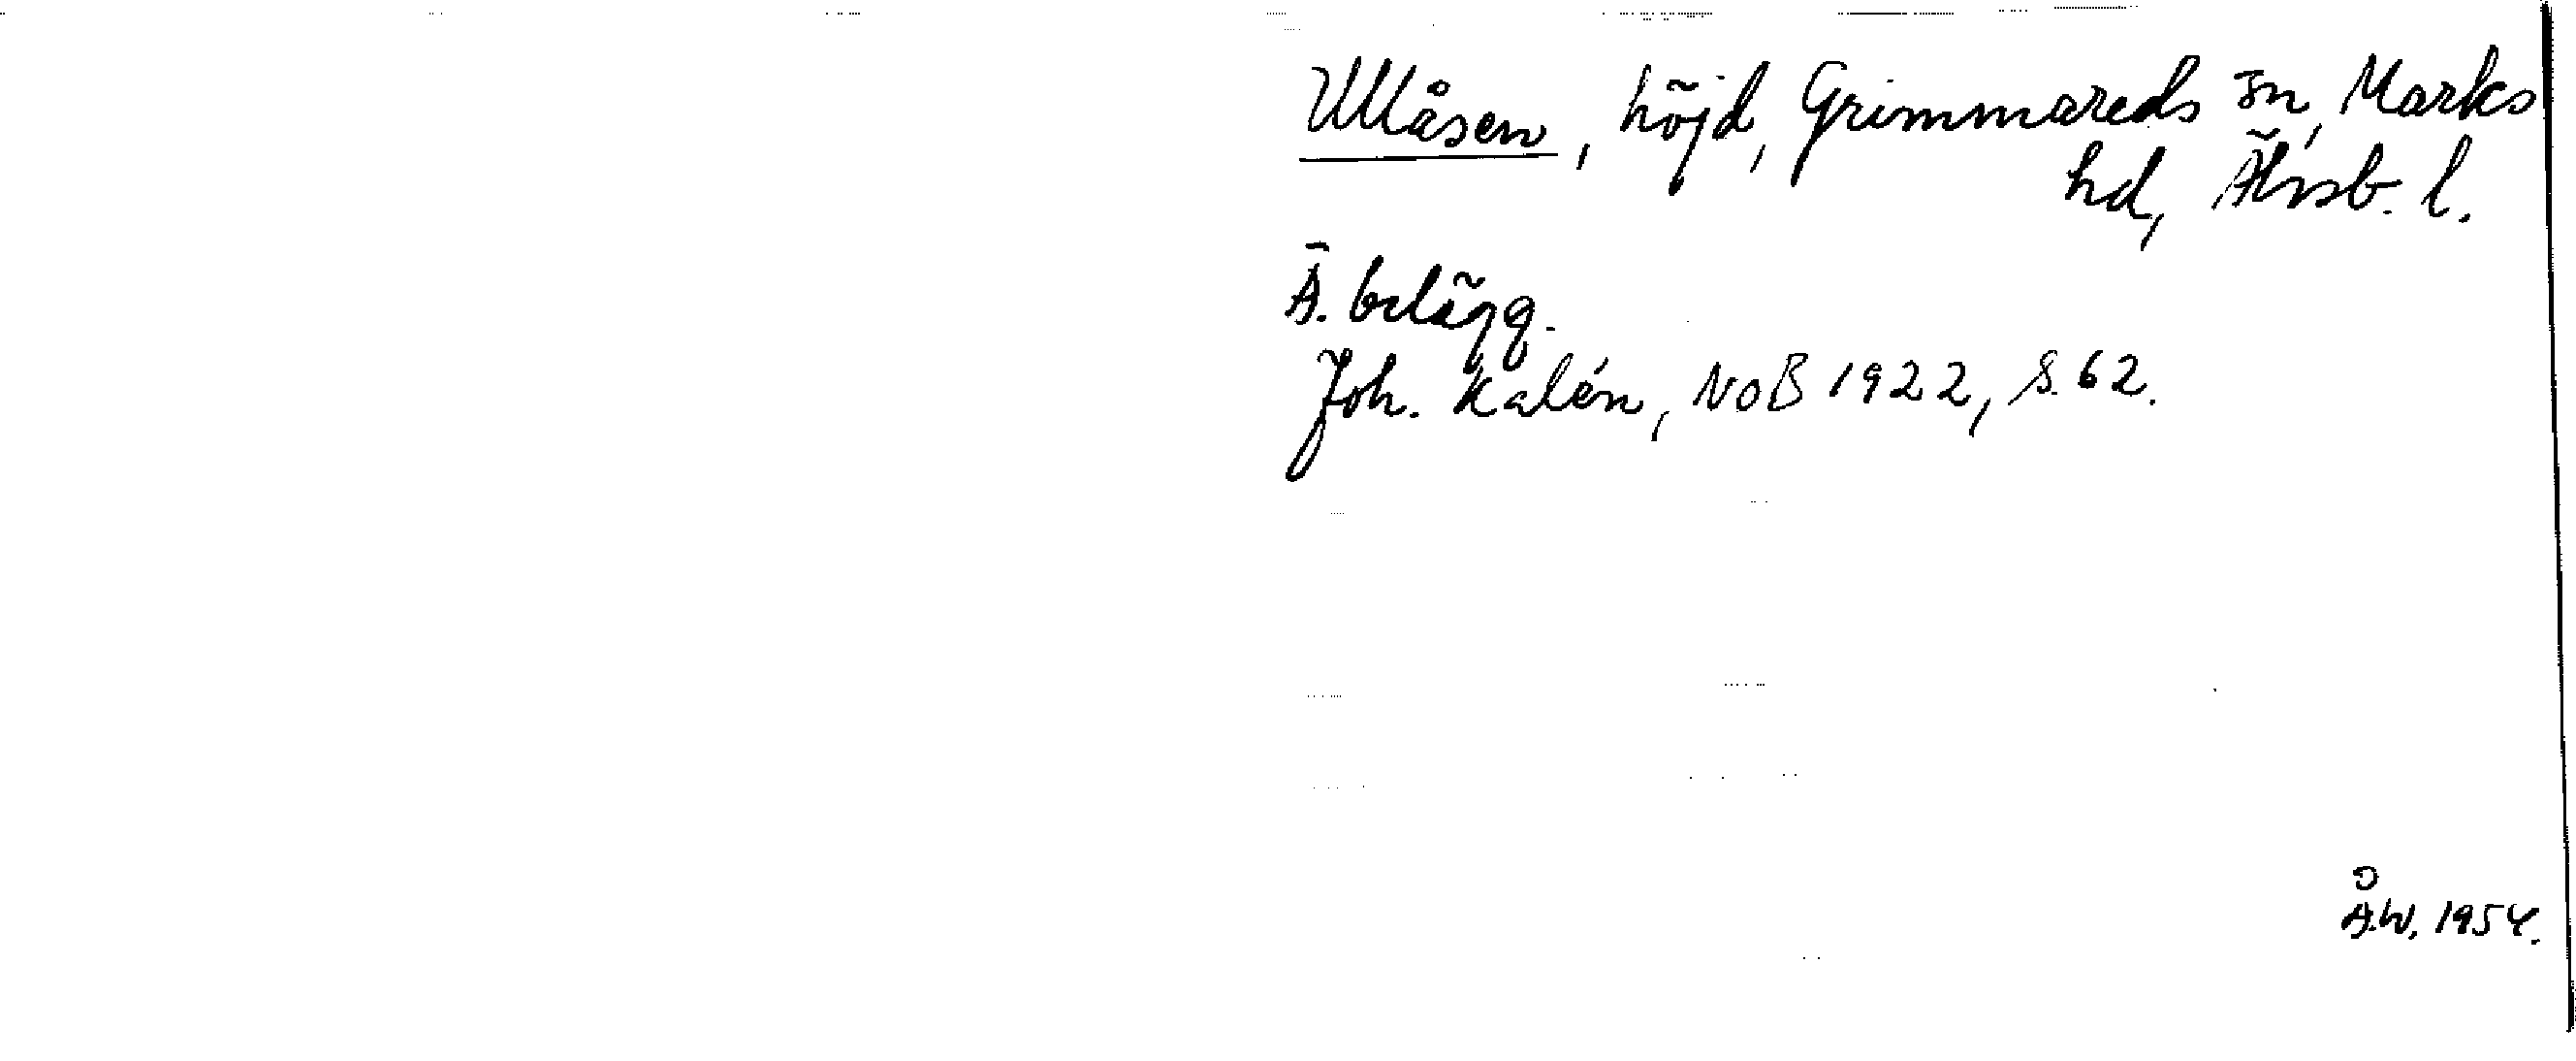 Ullåsen, höjd, Grimmareds sn, Marks
hd, Älvsb. l.
Ä. belägg.
Joh. Kalén, NoB 1922, S. 62.
Å.W. 1954.